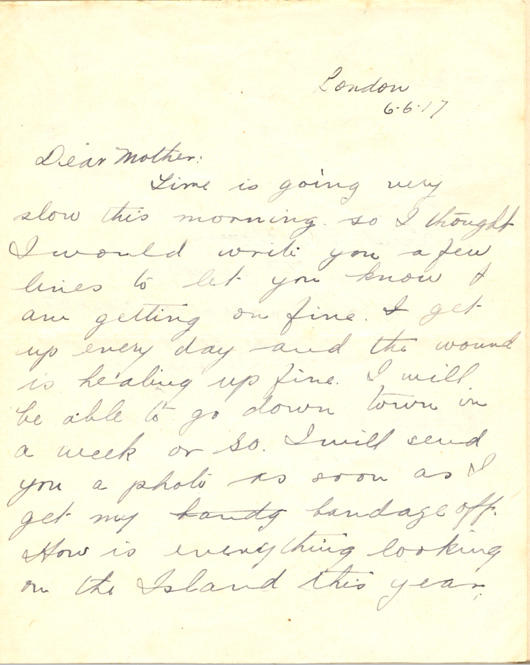 London
6-6-17
Dear Mother:
Time is going very
slow this morning. so I thought
I would write you a few
lines to let you know I
am getting on fine. I get
up every day and the wound
is healing up fine. I will
be able to go down town in
a week or so. I will send
you a photo as soon as I
get my bandg bandage off.
How is everything looking
on the Island this year.